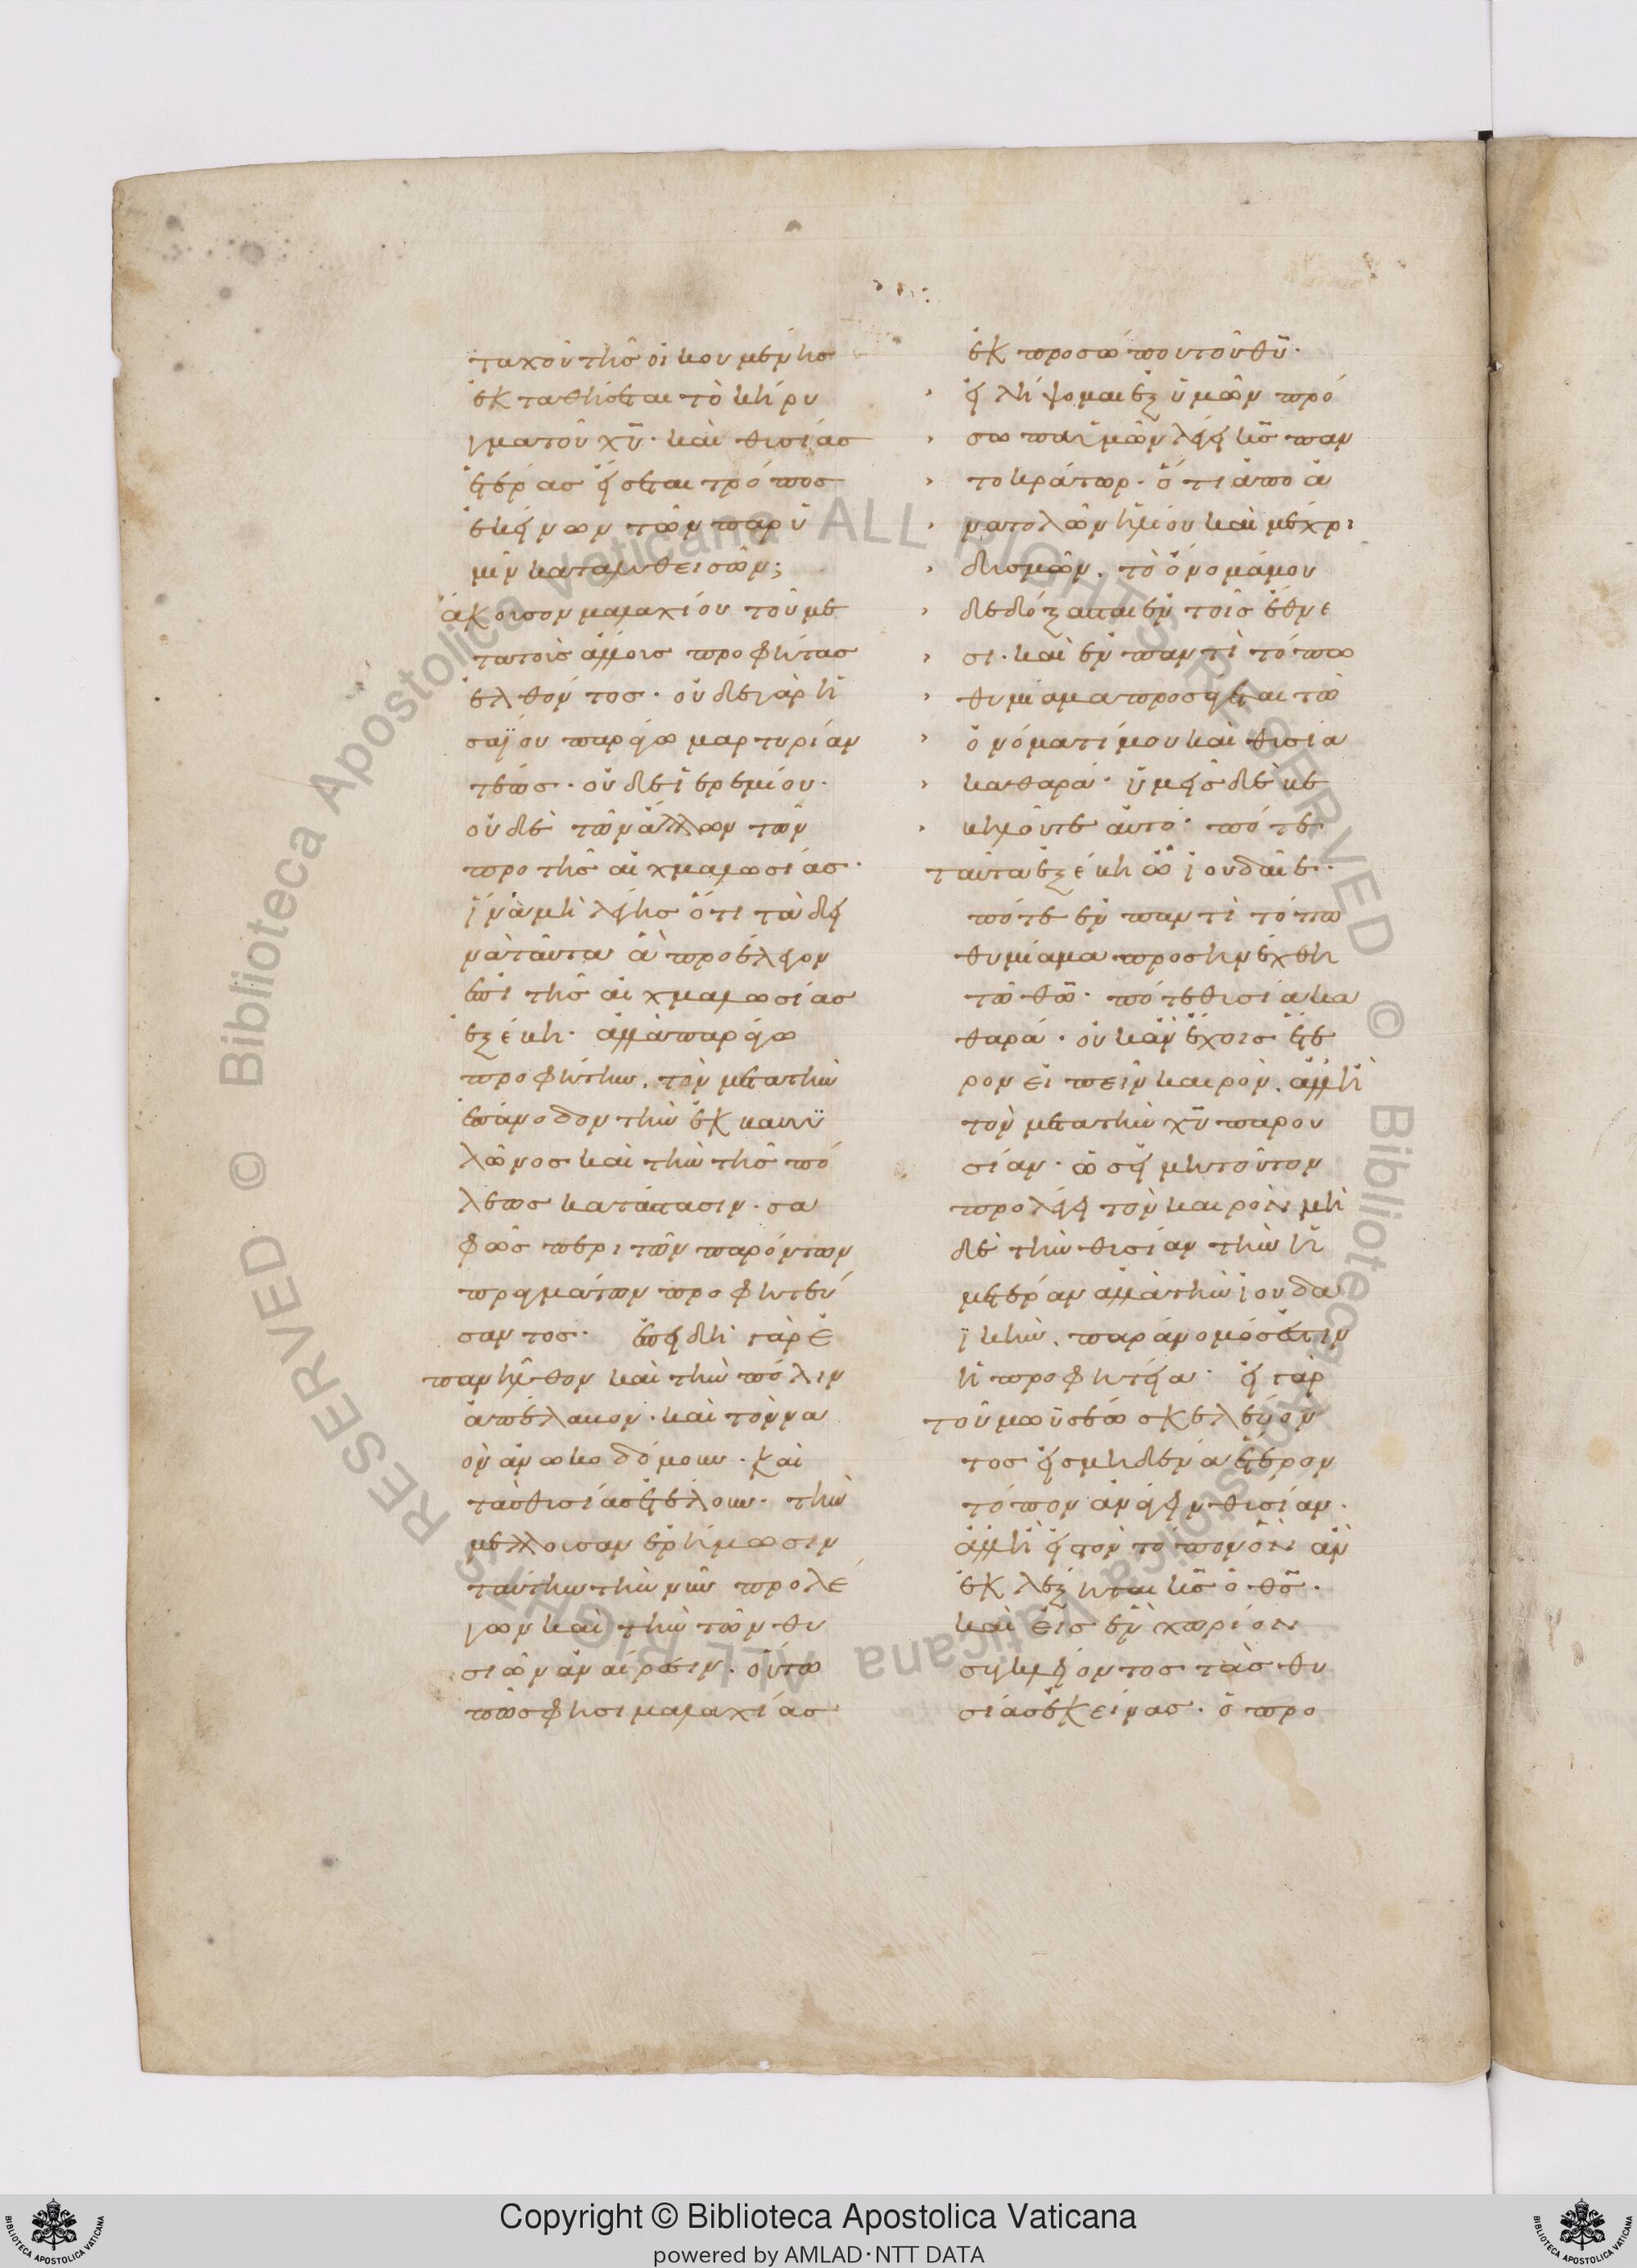 ταχοῦ τῆς οἰκουμένης
ἐκταθήσεται τὸ κήρυ
γμα τοῦ χῦ· καὶ θυσίας
ἑτέρας ἔσται τρόπος
ἐκείνων τῶν παρ' ὑ
μῖν καταλυθεισῶν;
ἄκουσον μαλαχίου τοῦ με
τὰ τοὺς ἄλλους προφήτας
ἐλθόντος· οὐδὲ γὰρ ἡ
σαΐου παρέξω μαρτυρίαν
τέως· οὐδὲ ἱερεμίου·
οὐδὲ τῶν ἄλλων τῶν
πρὸ τῆς αἰχμαλωσίας·
ἵνα μὴ λέγῃς ὅτι τὰ δει
νὰ ταῦτα ἃ προέλεγον
ἐπὶ τῆς αἰχμαλωσίας
ἐξέβη· ἀλλὰ παρέξω
προφήτην, τὸν μετὰ τὴν
ἐπάνοδον τὴν ἐκ βαβυ
λῶνος καὶ τὴν τῆς πό
λεως κατάστασιν· σα
φῶς περὶ τῶν παρόντων
πραγμάτων προφητεύ
σαντος· ἐπειδὴ γὰρ ἐ
πανῆλθον καὶ τὴν πόλιν
ἀπέλαβον· καὶ τὸν να
ὸν ἀνωκοδόμουν· καὶ
τὰς θυσίας ἐτέλουν· τὴν
μέλλουσαν ἐρήμωσιν
ταύτην τὴν νῦν προλέ
γων καὶ τὴν τῶν θυ
σιῶν ἀναίρεσιν· οὕτω
πώς φησι μαλαχίας
ἐκ προσώπου τοῦ θῦ·
εἰ λήψομαι ἐξ ὑμῶν πρό
σωπα ὑμῶν λέγει κς παν
τοκράτωρ· ὅτι ἀπὸ ἀ
νατολῶν ἡλίου καὶ μέχρι
δυσμῶν, τὸ ὄνομά μου
δεδόξασται ἐν τοῖς ἔθνε
σι· καὶ ἐν παντὶ τόπω
θυμίαμα προσάγεται τῶ
ὀνόματί μου καὶ θυσία
καθαρά· ὑμεῖς δὲ βε
βηλοῦτε αὐτό· πότε
ταῦτα ἐξέβη ὦ ἰουδαῖε·
πότε ἐν παντὶ τόπω
θυμίαμα προσηνέχθη
τῶ θῶ· πότε θυσία κα
θαρά· οὐκ ἂν ἔχοις ἕτε
ρον εἰπεῖν καιρὸν, ἀλλ' ἢ
τὸν μετὰ τὴν χῦ παρου
σίαν· ὡς εἰ μὴ τοῦτον
προλέγει τὸν καιρὸν μὴ
δὲ τὴν θυσίαν τὴν ἡ
μετέραν ἀλλὰ τὴν ἰουδα
ϊκὴν, παράνομός ἐστιν
ἡ προφητεία· εἰ γὰρ
τοῦ μωϋσέως κελεύον
τος εἰς μηδένα ἕτερον
τόπον ἀνάγειν θυσίαν·
ἀλλ' ἢ εἰς τὸν τόπον ὃν ἂν
ἐκλέξηται κς ὁ θς·
καὶ εἰς ἓν χωρίον
συγκλείοντος τὰς θυ
σίας ἐκείνας· ὁ προ
Copyright © Biblioteca Apostolica Vaticana
powered by AMLAD·NTT DATA